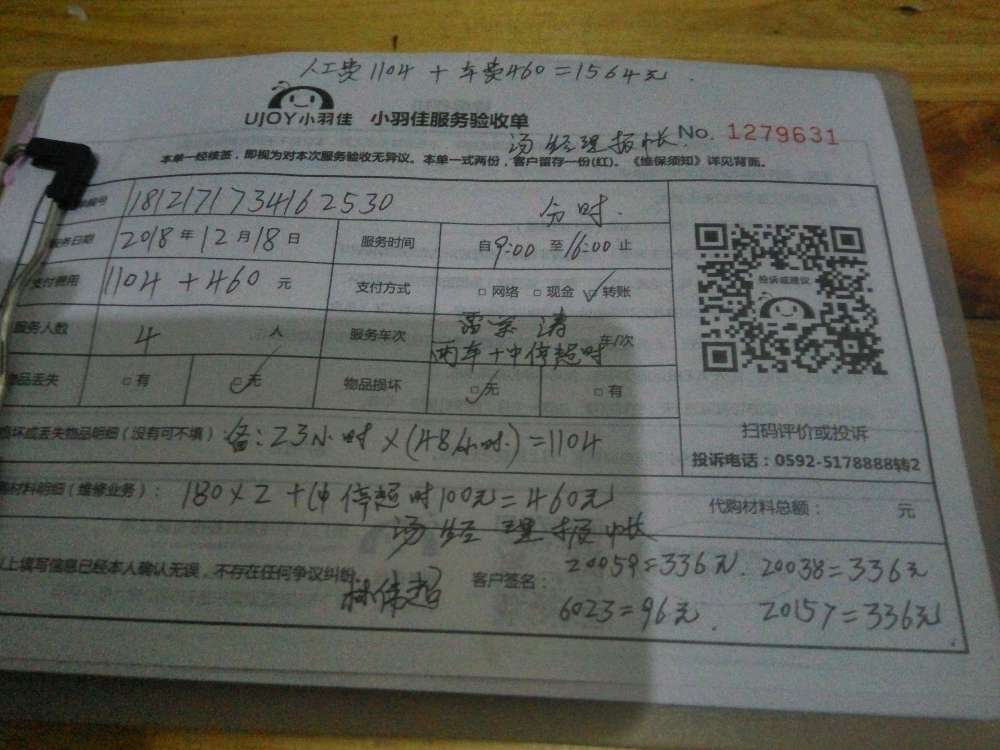 人工费1104+车费460=1564元.
UJOY小羽佳 小羽佳服务验收单
汤经理报帐 No. 1279631
本单一经核签，即视为对本次服务验收无异议。本单一式两份，客户留存一份(红)。《维保须知》详见背面。
编号 1812171734162530 分时.
服务日期 2018年12月18日 服务时间 自9:00至16:00止
支付费用 1104+460元 支付方式 □网络 □现金 ☑转账
投诉或建议
服务人数 4人 服务车次 两车+中停超时 车/次
物品丢失 □有 ☑无 物品损坏 ☑无 □有
扫码评价或投诉
损坏或丢失物品明细（没有可不填） 备:23小时×(48/小时.)=1104
投诉电话：0592-5178888转2
材料明细（维修业务）： 180×2+中停超时100元=460元 代购材料总额： 元
汤经理报帐
以上填写信息已经本人确认无误，不存在任何争议纠纷 林伟超 客户签名： 20059=336元. 20038=336元
6023=96元. 20157=336元